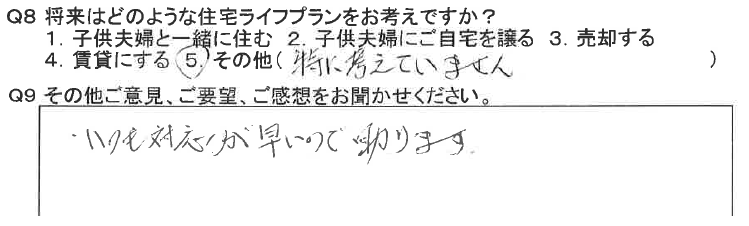 Q8 将来はどのような住宅ライフプランをお考えですか？
1. 子供夫婦と一緒に住む 2. 子供夫婦にご自宅を譲る 3. 売却する
4. 賃貸にする 5. その他( 特に考えていません )
Q9 その他ご意見、ご要望、ご感想をお聞かせください。
・いつも対応が早いので助ります